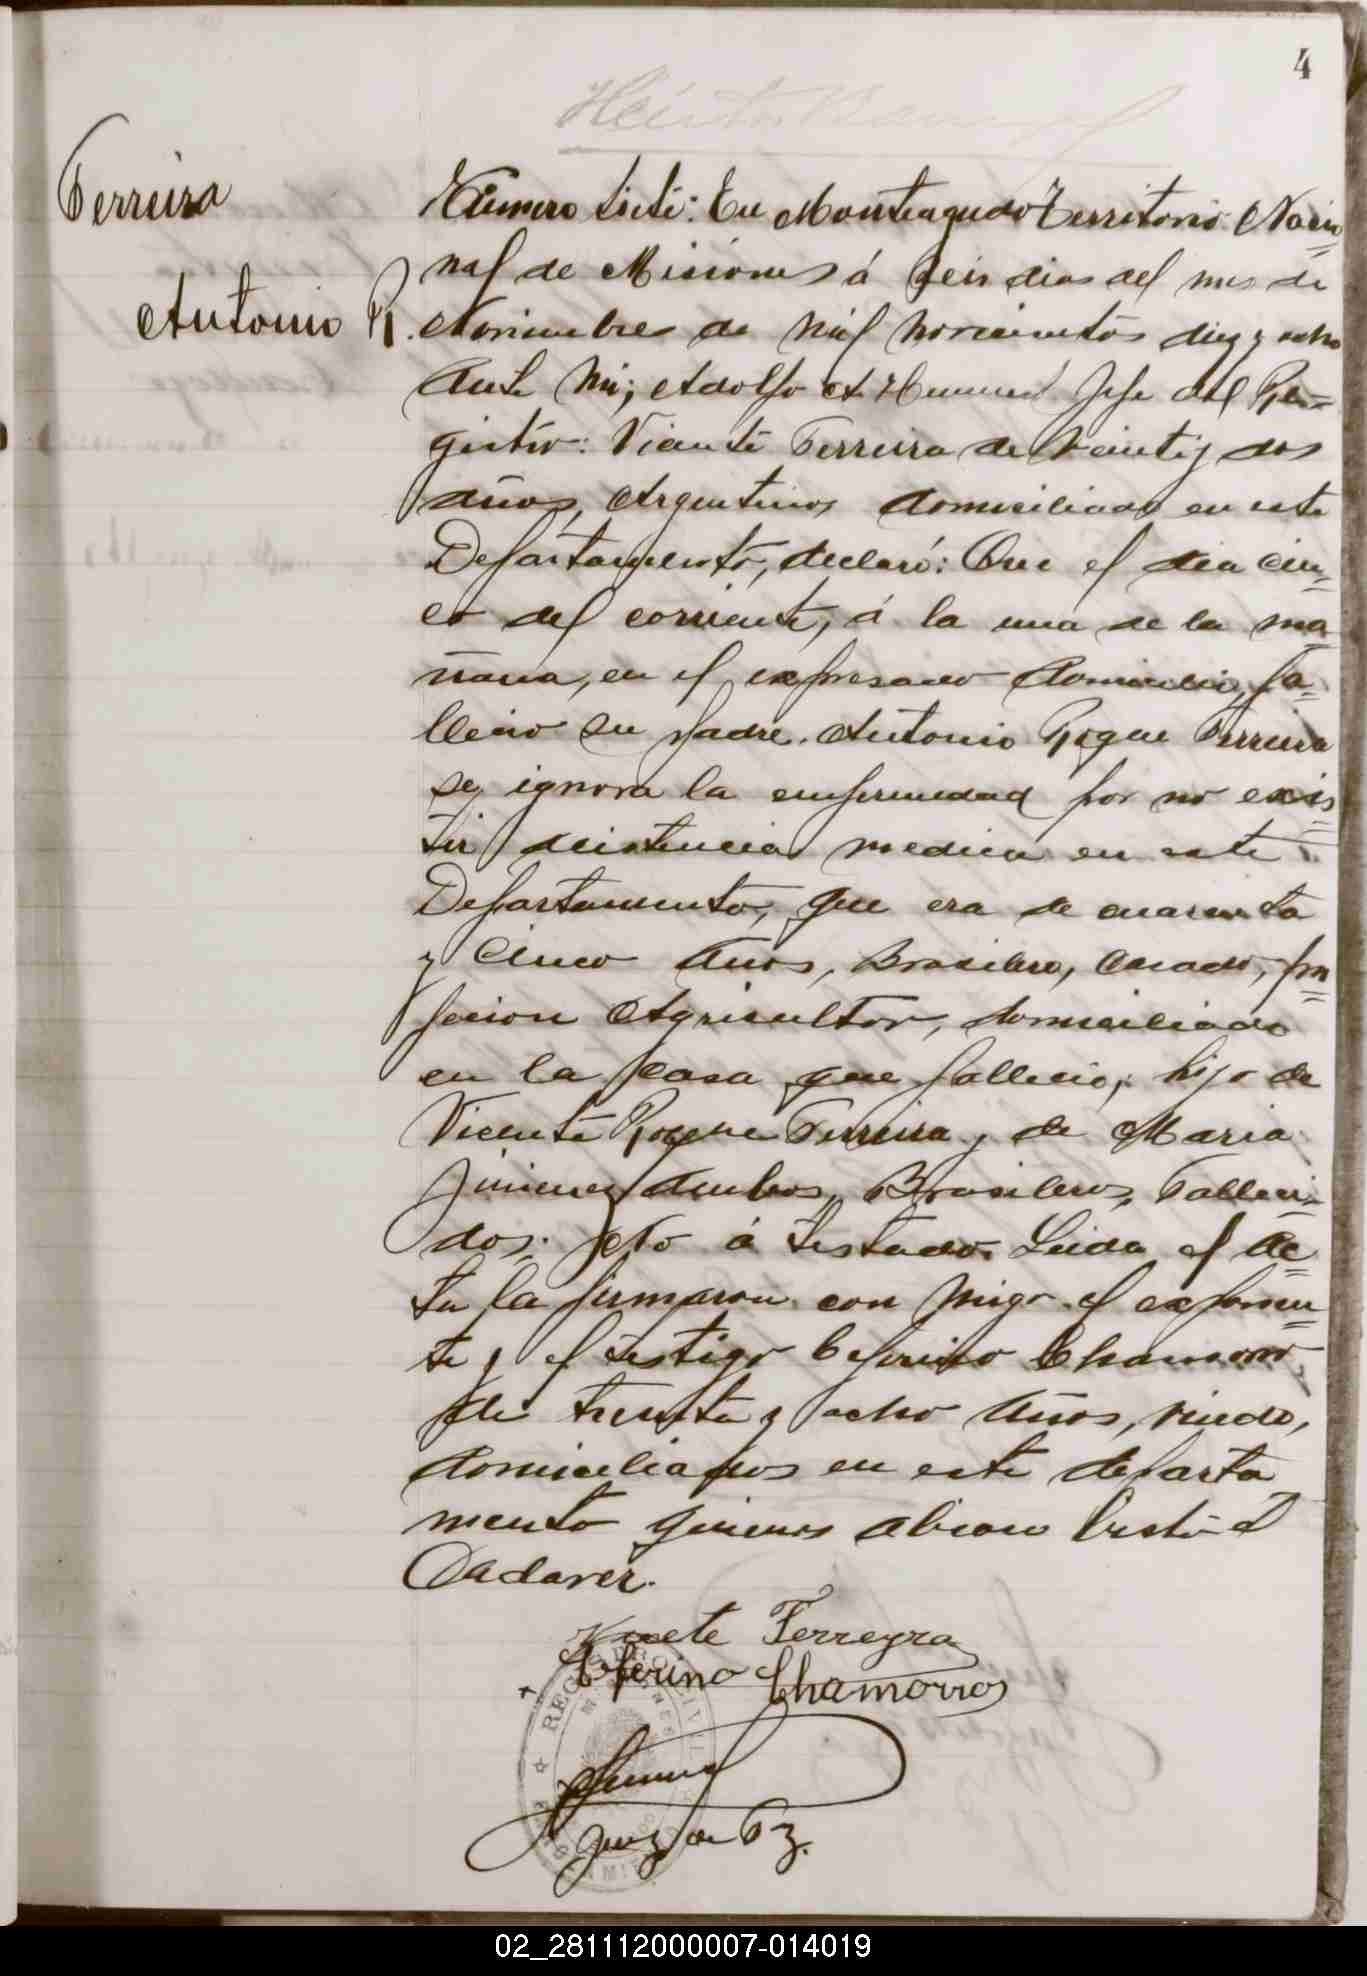 4
Ferreira
Antonio R.
Número siete: En Monteagudo Territorio Nacio=
nal de Misiones á seis dias del mes de
Noviembre de mil novecientos diez y ocho
Ante Mi; Adolfo A. Jefe del Re=
gistro: Vicente Ferreira de veinti y dos
años, Argentino, domiciliado en este
Departamento, declaró: Que el dia cin=
co del corriente, á la una de la ma
ñana, en el expresado domicilio, fa=
llecio su padre. Antonio Roque Ferreira
se ignora la enfermedad por no exis=
tir asistencia medica en este
Departamento, que era de cuarenta
y cinco años, Brasilero, casado, pro=
fecion Agricultor, domiciliado
en la casa que fallecio, hijo de
Vicente Roque Ferreira y de Maria
Jimenez ambos, Brasileros, Falleci=
dos; No á testado. Leida el Ac=
ta la firmaron con migo el exponen=
te y el testigo Ceferino Chamorro,
de treinta y ocho años, viudo,
domiciliados en este departa
mento quienes abian visto el
Cadaver.
Vicete Ferreyra
Ceferino Chamorros
Juez de Paz.
REGISTRO CIVIL
MISIONES
02_281112000007-014019